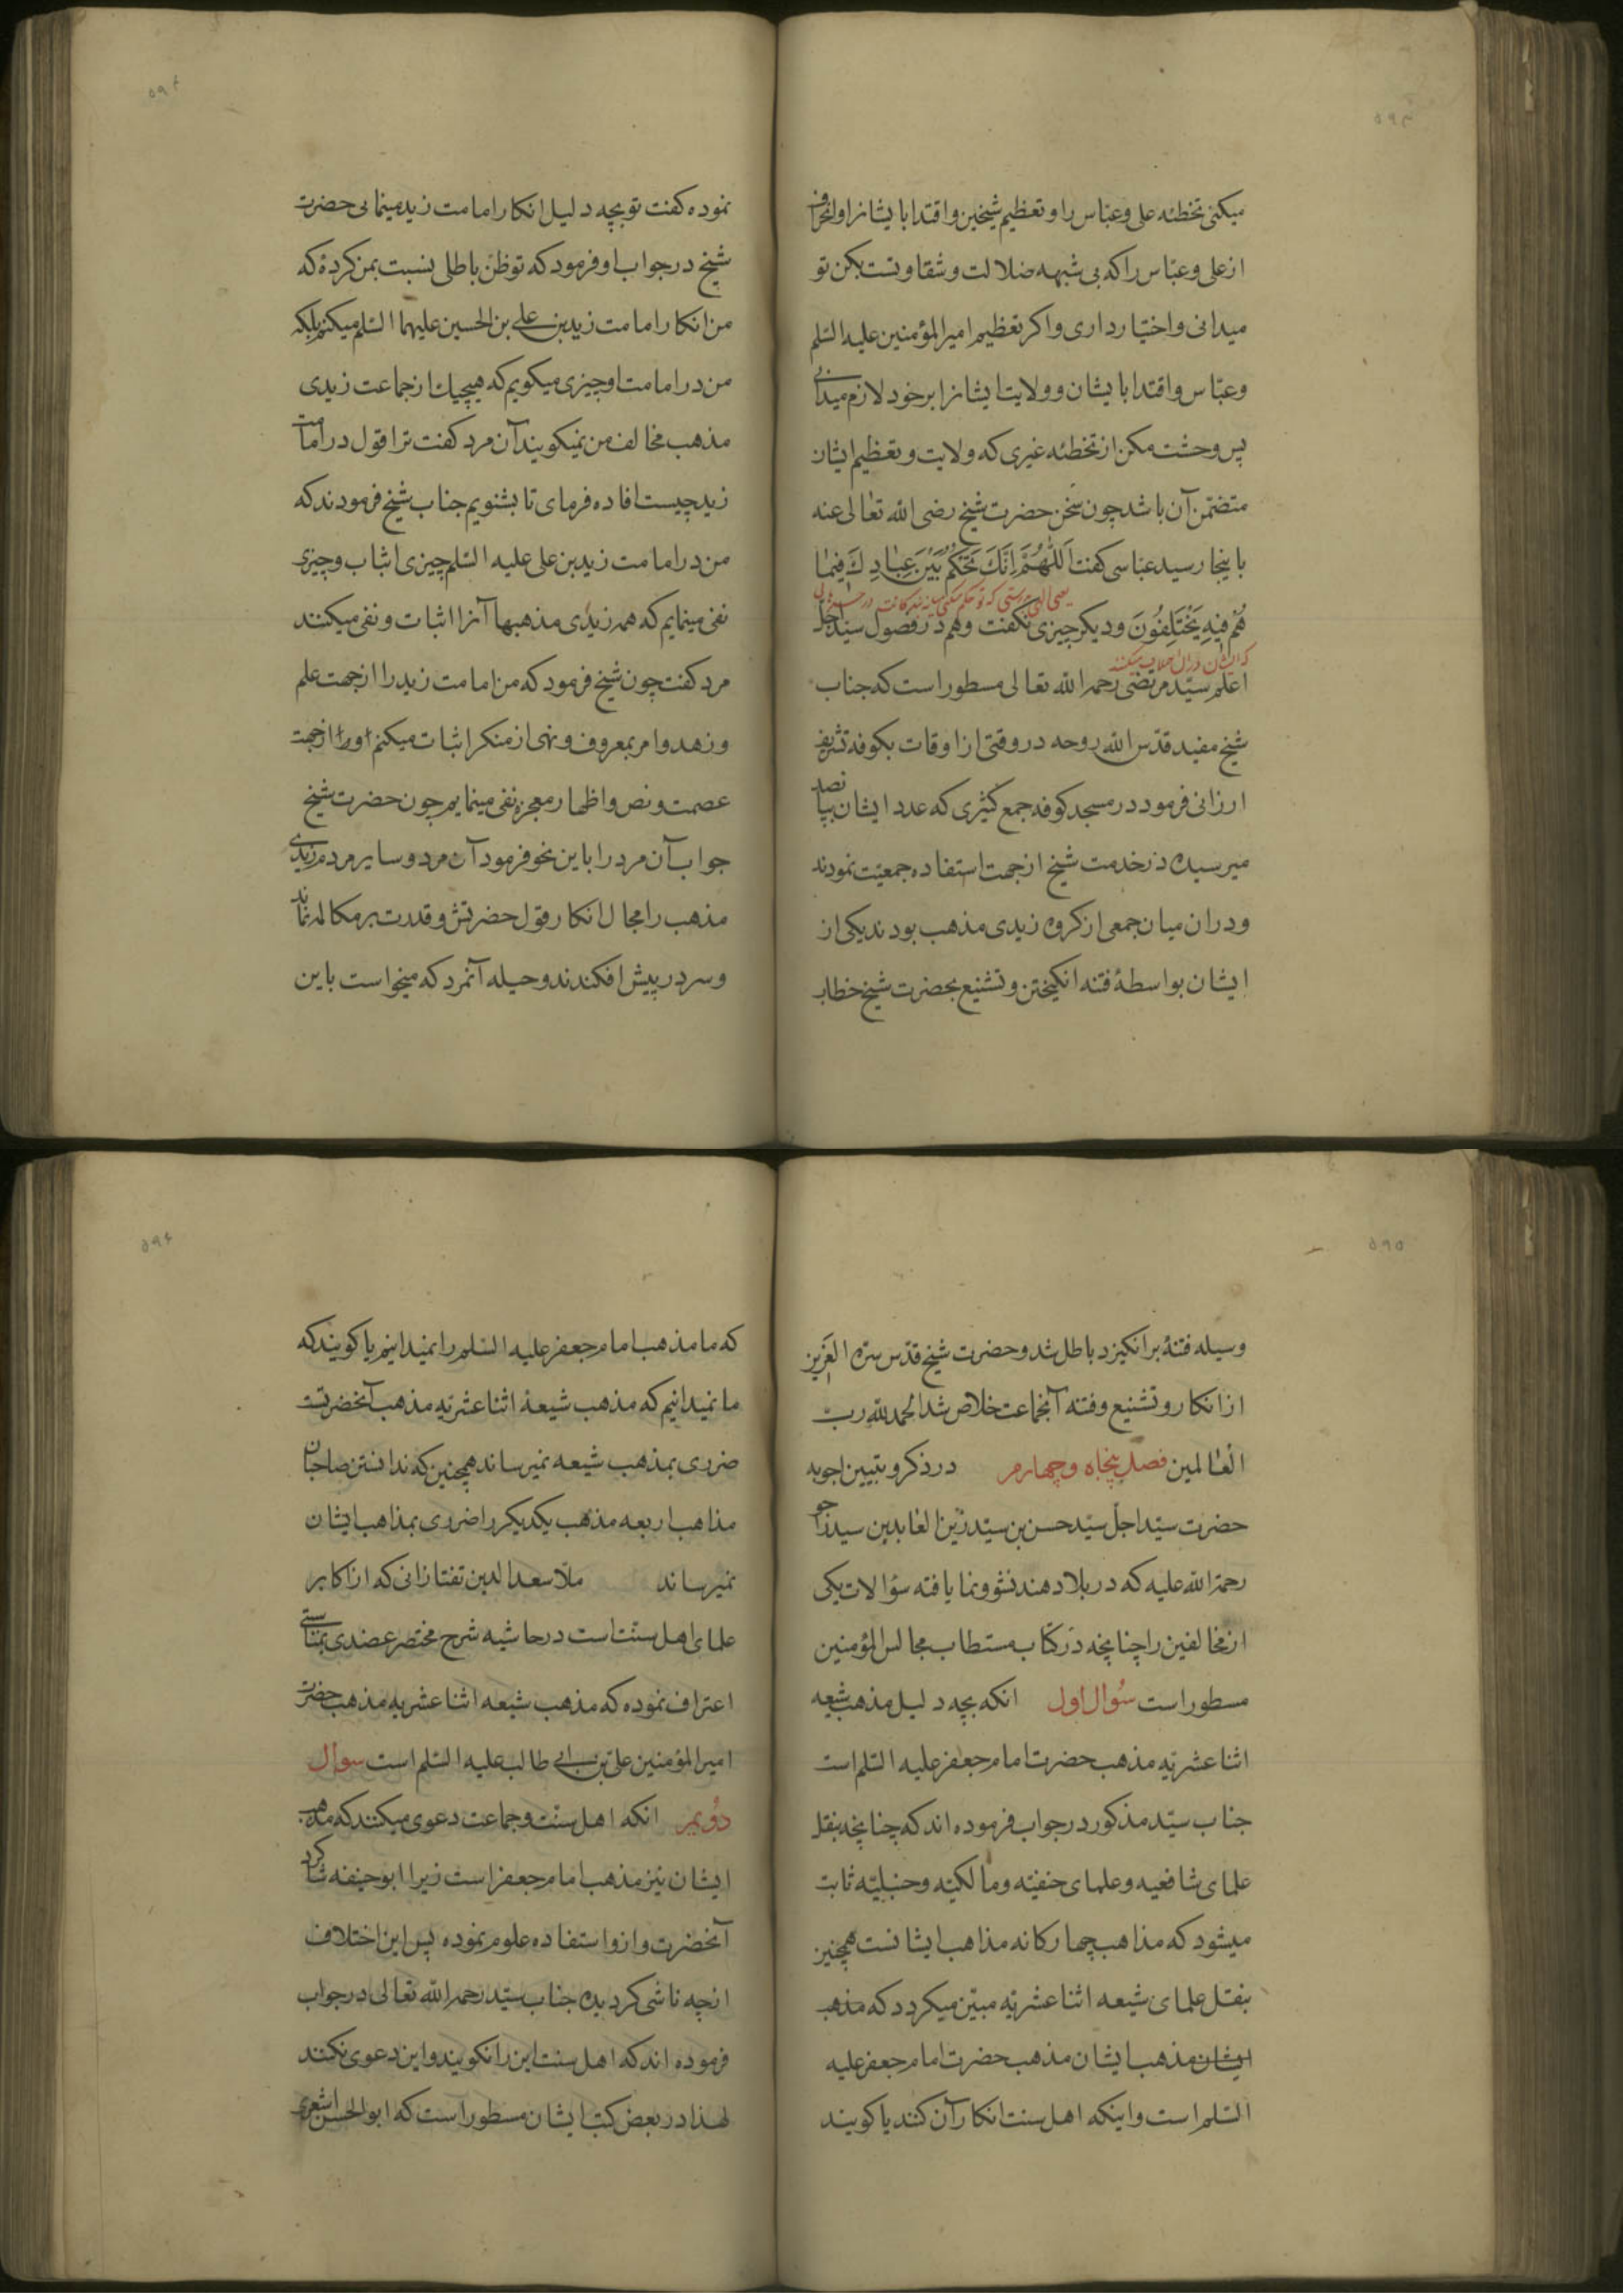 ۵۹۳
میکنی تخطئه علی وعبّاس را وتعظیم شیخین واقتدا بایشانرا وانحراف
ازعلی وعبّاس راکه بی شبهه ضلالت وشقاوتست بکن تو
میدانی واختیار داری واکر تعظیم امیرالمؤمنین علیه السّلم
وعبّاس واقتدا بایشان وولایت ایشانرا برخود لازم میدانی
پس وحشت مکن ازتخطئه غیری که ولایت وتعظیم ایشان
متضمّن آن باشد چون سخن حضرت شیخ رضی الله تعالی عنه
باینجا رسید عباسی کفت اَللّٰهُمَّ اِنَّكَ تَحْکُمُ بَیْنَ عِبٰادِكَ فیمٰا
یعنی الهی بدرستی که تو حکم میکنی میانه بندکانت در
هُمْ فیهِ یَخْتَلِفُونَ ودیکر چیزی نکفت وهم در فصول سیّد اجلّ
که ایشان دران اختلاف میکنند
اعلم سیّد مرتضی رحمه الله تعالی مسطور است که جناب
شیخ مفید قدّس الله روحه دروقتی ازاوقات بکوفه تشریف
ارزانی فرمود درمسجد کوفه جمع کثیری که عدد ایشان بپانصد
میرسیده درخدمت شیخ ازجهت استفاده جمعیّت نمودند
ودران میان جمعی ازکروه زیدی مذهب بودند یکی از
ایشان بواسطهٔ فتنه انکیختن وتشنیع بحضرت شیخ خطاب
۵۹۴
نموده کفت تو بچه دلیل انکار امامت زید مینمائی حضرت
شیخ درجواب او فرمود که تو ظنّ باطلی نسبت بمن کردهٔ که
من انکار امامت زید بن علی بن الحسین علیهما السّلم میکنم بلکه
من در امامت او چیزی میکویم که هیچیك ازجماعت زیدی
مذهب مخالف من نمیکویند آن مرد کفت ترا قول در امامت
زید چیست افاده فرمای تا بشنویم جناب شیخ فرمودند که
من در امامت زید بن علی علیه السّلم چیزی اثبات وچیزی
نفی مینمایم که همه زیدی مذهبها آنرا اثبات ونفی میکنند
مرد کفت چون شیخ فرمود که من امامت زید را ازجهت علم
وزهد وامر بمعروف ونهی ازمنکر اثبات میکنم واورا ازجهت
عصمت ونص واظهار معجزه نفی مینمایم چون حضرت شیخ
جواب آن مرد را باین نحو فرمود آن مرد وسایر مردم زیدی
مذهب را مجال انکار قول حضرتش وقدرت برمکالمه نماند
وسر در پیش افکندند وحیله آنمرد که میخواست باین
۵۹۵
وسیله فتنهٔ برانکیزد باطل شد وحضرت شیخ قدّس سرّه العَزیز
ازانکار وتشنیع وفتنه آنجماعت خلاص شد الحمد للّه ربّ
العٰالمین فصل پنجاه وچهارم درذکر وتبیین اجوبه
حضرت سیّد اجلّ سیّد حسن بن سیّد زین العابدین
رحمة الله علیه که در بلاد هند نشوونما یافته سؤالات یکی
ازمخالفین را چنانچه درکتاب مستطاب مجالس المؤمنین
مسطور است سُوال اول انکه بچه دلیل مذهب شیعه
اثنا عشریّه مذهب حضرت امام جعفر علیه السّلم است
جناب سیّد مذکور درجواب فرموده اند که چنانچه بنقل
علمای شافعیه وعلمای حنفیّه ومالکیّه وحنبلیّه ثابت
میشود که مذاهب چهارکانه مذاهب ایشانست همچنین
بنقل علمای شیعه اثنا عشریّه مبیّن میکردد که مذهب
ایشان مذهب ایشان مذهب حضرت امام جعفر علیه
السّلم است واینکه اهل سنت انکار آن کنند یا کویند
۵۹۶
که ما مذهب امام جعفر علیه السّلم را نمیدانیم یا کویند که
ما نمیدانیم که مذهب شیعهٔ اثنا عشریّه مذهب آنحضرتست
ضرری بمذهب شیعه نمیرساند همچنین که ندانستن صاحبان
مذاهب اربعه مذهب یکدیکر را ضرری بمذاهب ایشان
نمیرساند ملّا سعد الدین تفتازانی که ازاکابر
علمای اهل سنّت است درحاشیه شرح مختصر عضدی
اعتراف نموده که مذهب شیعه اثنا عشریه مذهب حضرت
امیرالمؤمنین علیّ بن ابی طالب علیه السّلم است سوال
دوُیم انکه اهل سنّت وجماعت دعوی میکنند که مذهب
ایشان نیز مذهب امام جعفر است زیرا ابو حنیفه شاکرد
آنحضرت وازو استفاده علوم نموده پس این اختلاف
ازچه ناشی کردیده جناب سیّد رحمه الله تعالی درجواب
فرموده اند که اهل سنت این را نکویند واین دعوی نکنند
لهذا در بعض کتب ایشان مسطور است که ابوالحسن اشعری